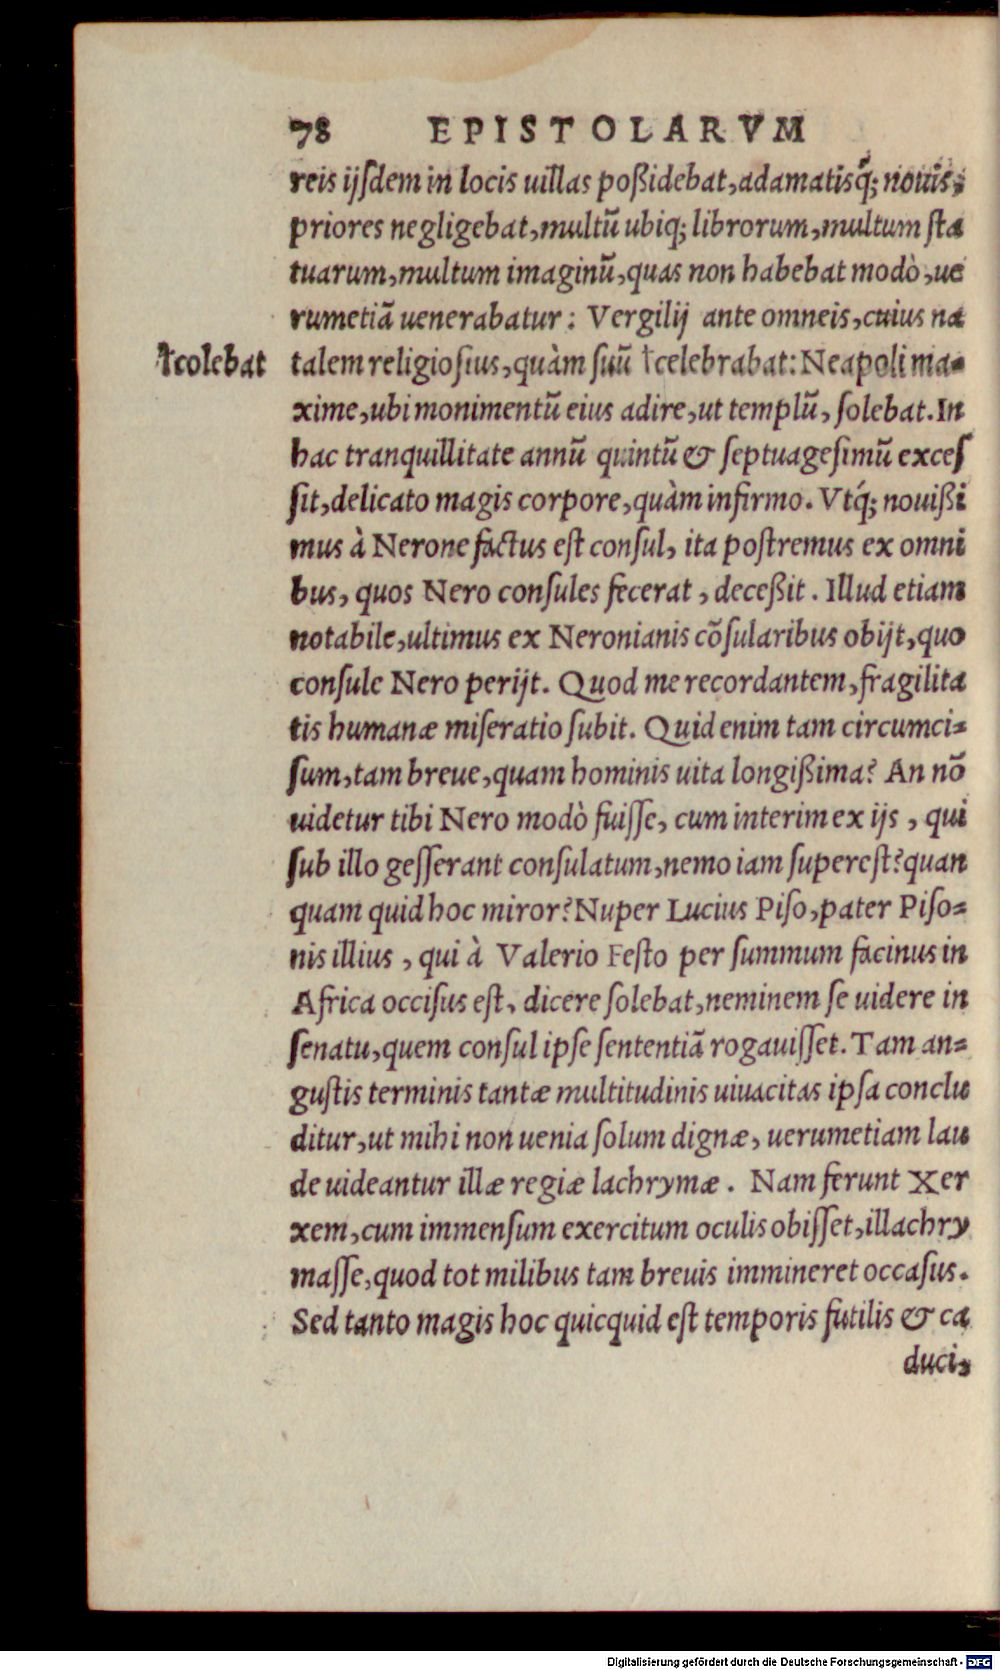 78 EPISTOLARVM
reis ijſdem in locis uillas poßidebat, adamatisq́; nouis,
priores negligebat, multũ ubiq; librorum, multum ſta
tuarum, multum imaginũ, quas non habebat modò, ue
rumetiã uenerabatur: Vergilij ante omneis, cuius na
†colebat
talem religioſius, quàm ſuũ †celebrabat: Neapoli ma=
xime, ubi monimentũ eius adire, ut templũ, ſolebat. In
hac tranquillitate annũ quintũ & ſeptuageſimũ exceſ
ſit, delicato magis corpore, quàm infirmo. Vtq́; nouißi
mus à Nerone factus eſt conſul, ita poſtremus ex omni
bus, quos Nero conſules fecerat, deceßit. Illud etiam
notabile, ultimus ex Neronianis cõſularibus obijt, quo
conſule Nero perijt. Quod me recordantem, fragilita
tis humanæ miſeratio ſubit. Quid enim tam circumci=
ſum, tam breue, quam hominis uita longißima? An nõ
uidetur tibi Nero modò fuiſſe, cum interim ex ijs, qui
ſub illo geſſerant conſulatum, nemo iam ſupereſt? quan
quam quid hoc miror? Nuper Lucius Piſo, pater Piſo=
nis illius, qui à Valerio Feſto per ſummum facinus in
Africa occiſus eſt, dicere ſolebat, neminem ſe uidere in
ſenatu, quem conſul ipſe ſententiã rogauiſſet. Tam an=
guſtis terminis tantæ multitudinis uiuacitas ipſa conclu
ditur, ut mihi non uenia ſolum dignæ, uerumetiam lau
de uideantur illæ regiæ lachrymæ. Nam ferunt Xer
xem, cum immenſum exercitum oculis obiſſet, illachry
maſſe, quod tot milibus tam breuis immineret occaſus.
Sed tanto magis hoc quicquid eſt temporis futilis & ca
duci,
Digitalisierung gefördert durch die Deutsche Forschungsgemeinschaft - DFG